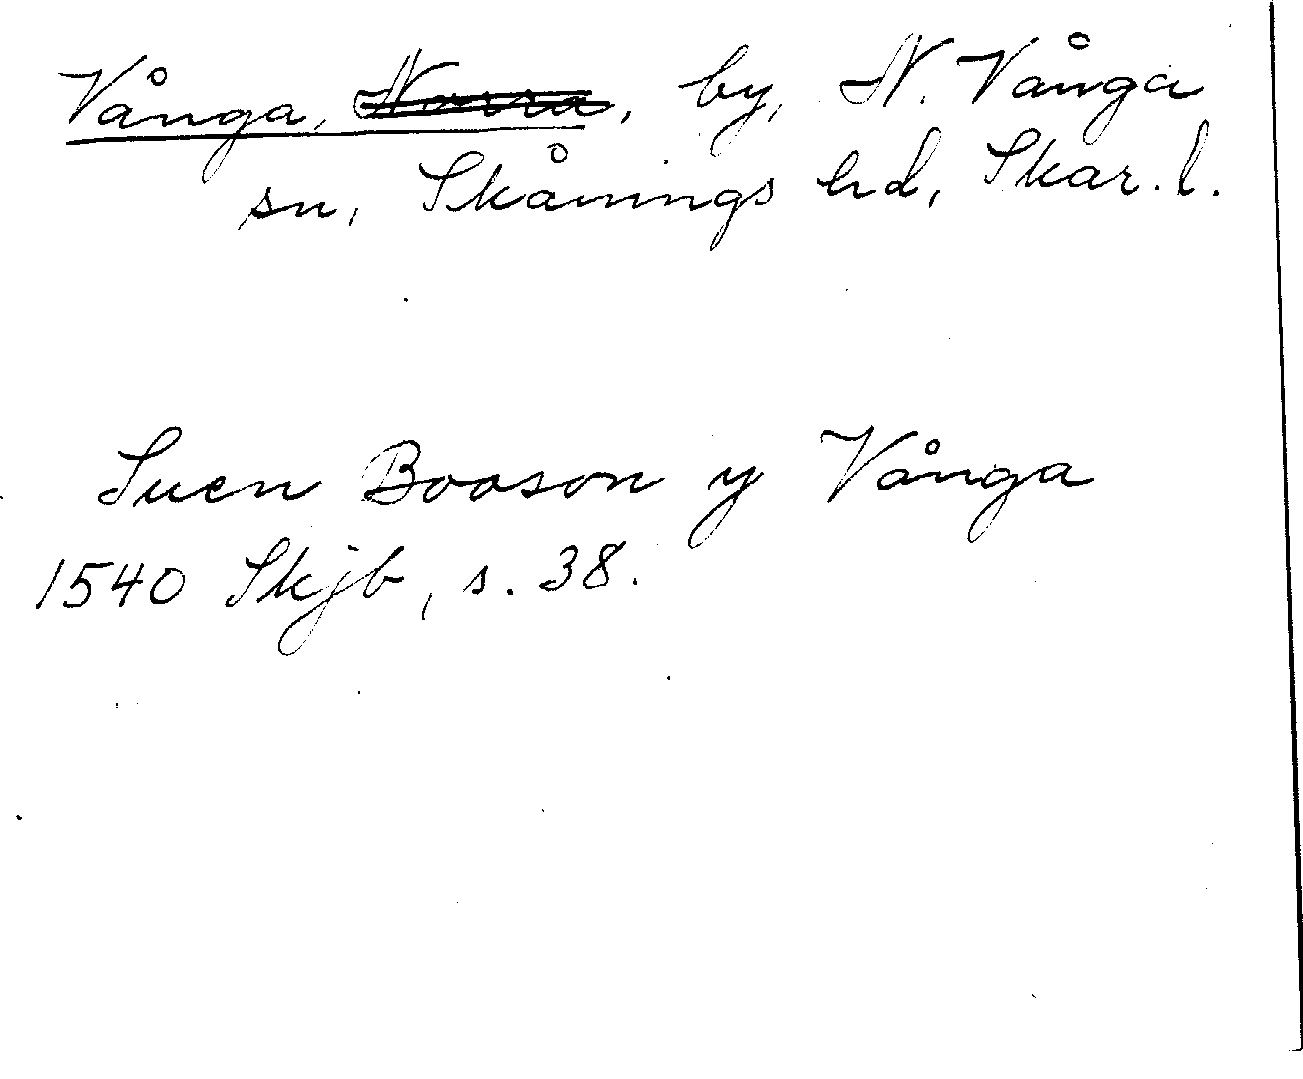 Vånga, Norra, by, N. Vånga
sn, Skånings hd, Skar. l.
Suen Booson y Vånga
1540 Skjb, s. 38.